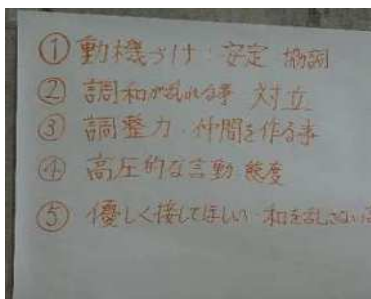 ① 動機づけ・安定 協調
② 調和が乱れる事 対立
③ 調整力・仲間を作る事
④ 高圧的な言動 態度
⑤ 優しく接してほしい 和を乱さない